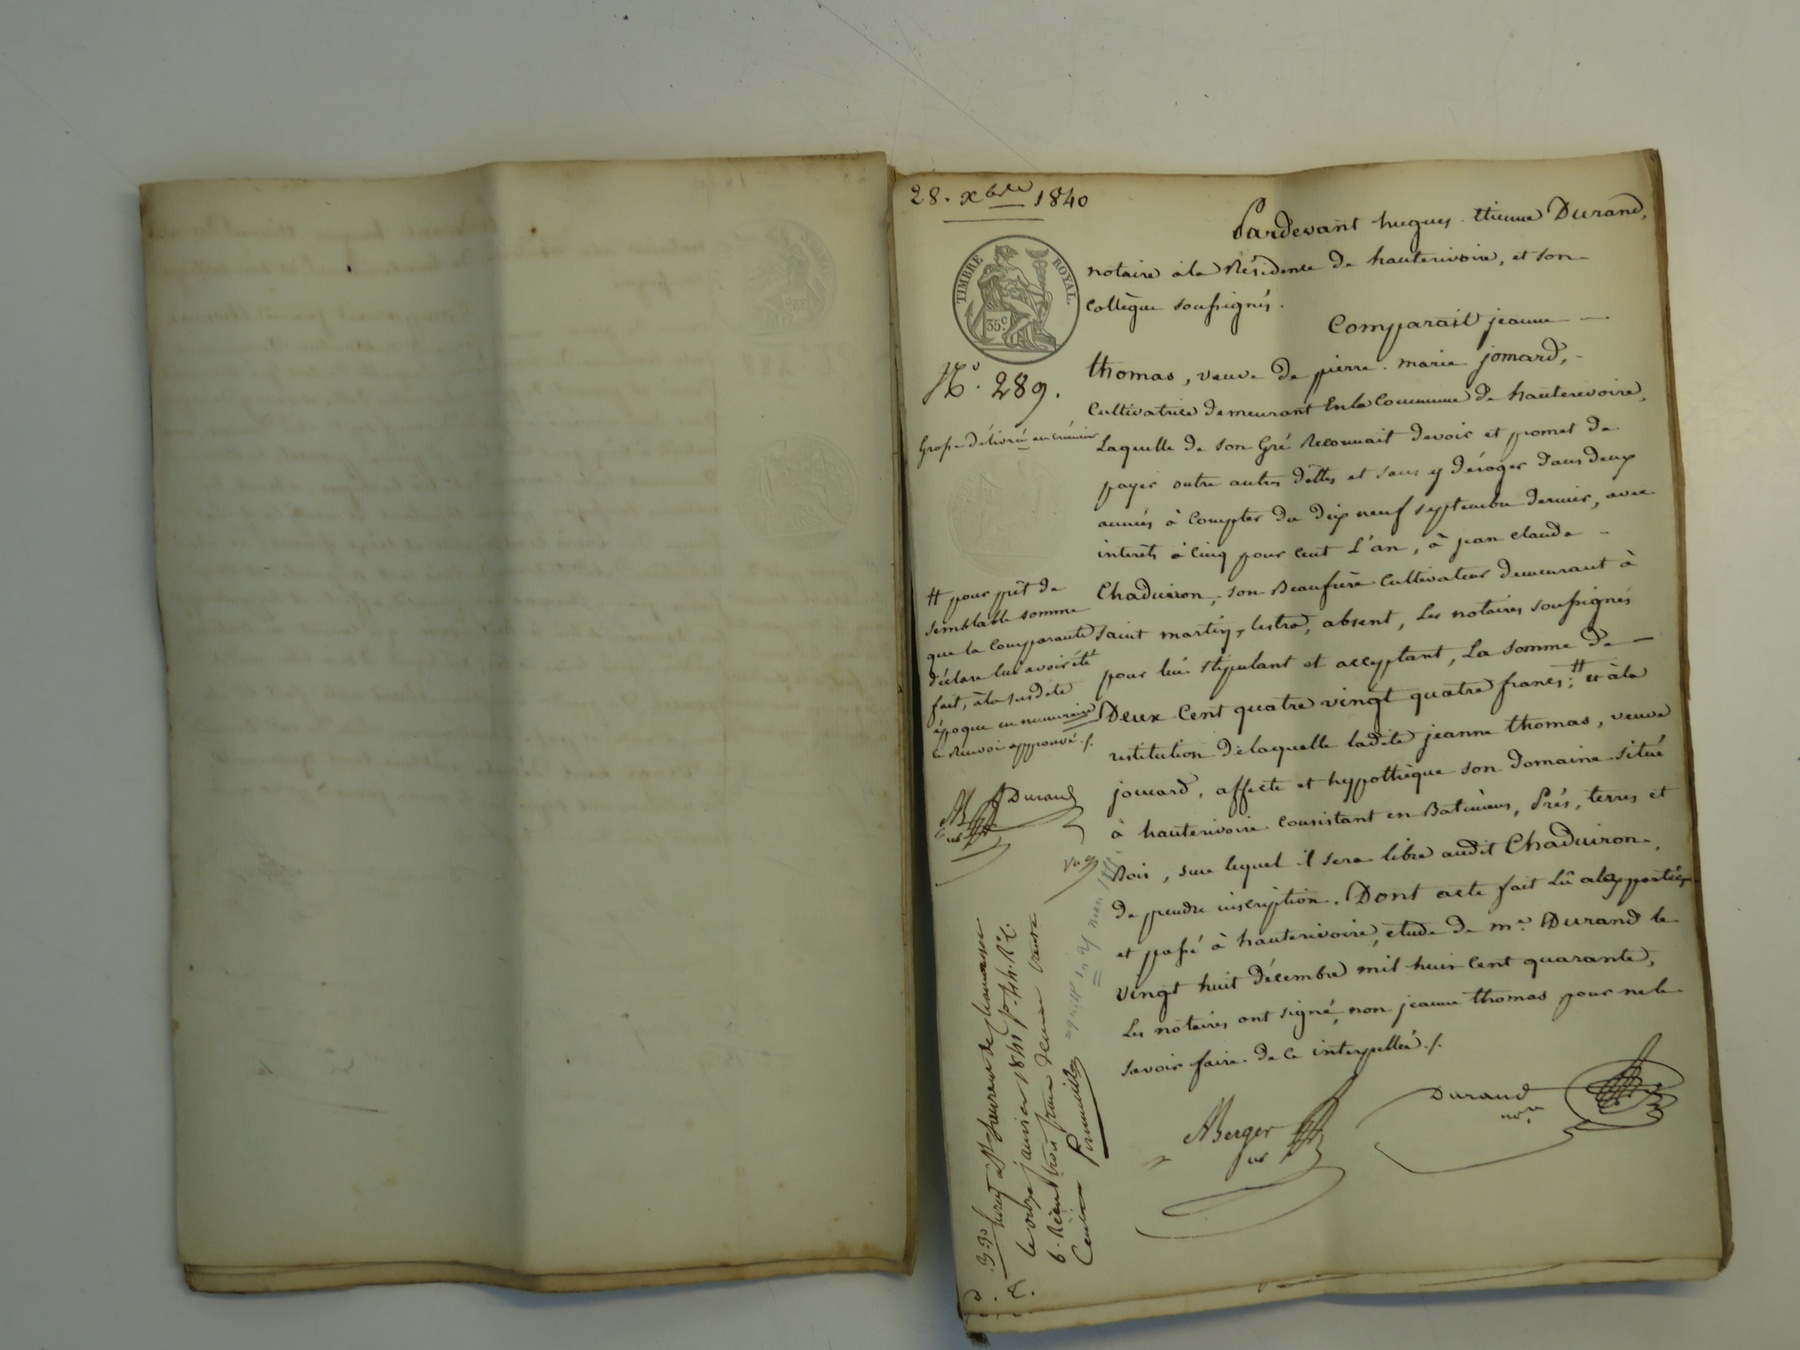 28. xbre 1840
TIMBRE ROYAL.
35c
No. 289.
Grosse délivrée au créancier
Pardevant hugues. étienne Durand,
notaire à la Résidence de hauterivoire, et son
Collègue soussignés.
Comparait jeanne
thomas, veuve de pierre. marie jomard,
Cultivatrice demeurant En la Commune de hauterivoire,
Laquelle de son Gré Reconnait devoir et promet de
payer outre autres dettes et sans y déroger dans deux
années à Compter du dix neuf septembre dernier, avec
interêts à Cinq pour Cent L'an, à jean claude
Chaduiron, son Beaufrère Cultivateur demeurant à
saint martin, lestra, absent, Les notaires soussignés
pour lui stipulant et acceptant, La somme de
Deux Cent quatre vingt quatre francs; # et à la
restitution de laquelle ladite jeanne thomas, veuve
jomard, affecte et hypothèque son domaine situé
à hauterivoire Consistant en Batimens, Prés, terres et
Bois, sur lequel il sera libre audit Chaduiron,
de prendre inscription. Dont acte fait Lû aux parties
et passé à hauterivoire, etude de me. Durand le
vingt huit décembre mil huit Cent quarante,
Les notaires ont signé, non jeanne thomas pour ne le
savoir faire de ce interpellée ./.
# pour prêt de
semblable somme
que la Comparante
déclare lui avoir été
fait, à la susdite
époque en numeraire
le Renvoi approuvé ./.
AB Durand
nre
ABerger
nre
Durand
nore.
le onze janvier 1841 fo. 44. Ro. C.
6. Reçu trois francs
Centimes